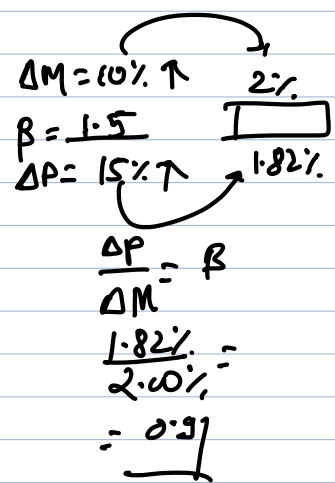 ΔM = 10% ↑
2%
β = 1.5
ΔP = 15% ↑
1.82%
ΔP/ΔM = β
1.82%/2.00% =
= 0.91